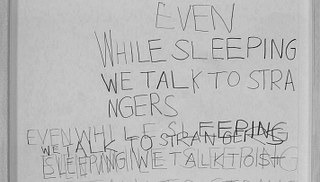 EVEN
WHILE SLEEPING
WE TALK TO STRA
NGERS
EVEN WHILE SLEEPING
WE TALK TO STRANGERS
SLEEPING WE TALK TO